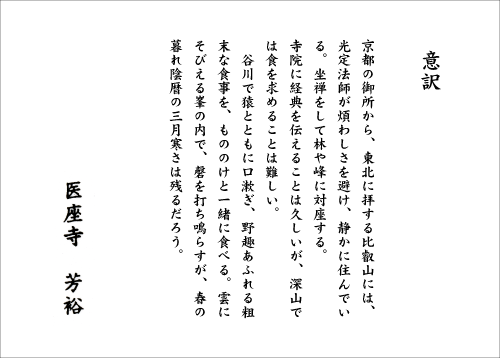 意訳
京都の御所から、東北に拝する比叡山には、
光定法師が煩わしさを避け、静かに住んでい
る。坐禅をして林や峰に対座する。
寺院に経典を伝えることは久しいが、深山で
は食を求めることは難しい。
谷川で猿とともに口漱ぎ、野趣あふれる粗
末な食事を、もののけと一緒に食べる。雲に
そびえる峯の内で、磬を打ち鳴らすが、春の
暮れ陰暦の三月寒さは残るだろう。
医座寺 芳裕